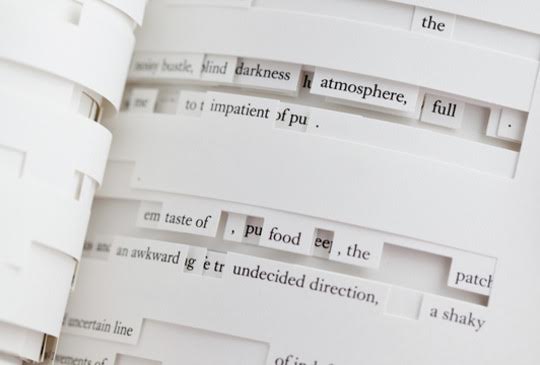 the
noisy bustle, blind darkness atmosphere, full .
me to impatient of pu .
em taste of , pu food ee , the patch
an awkward undecided direction, a shaky
uncertain line
ements of